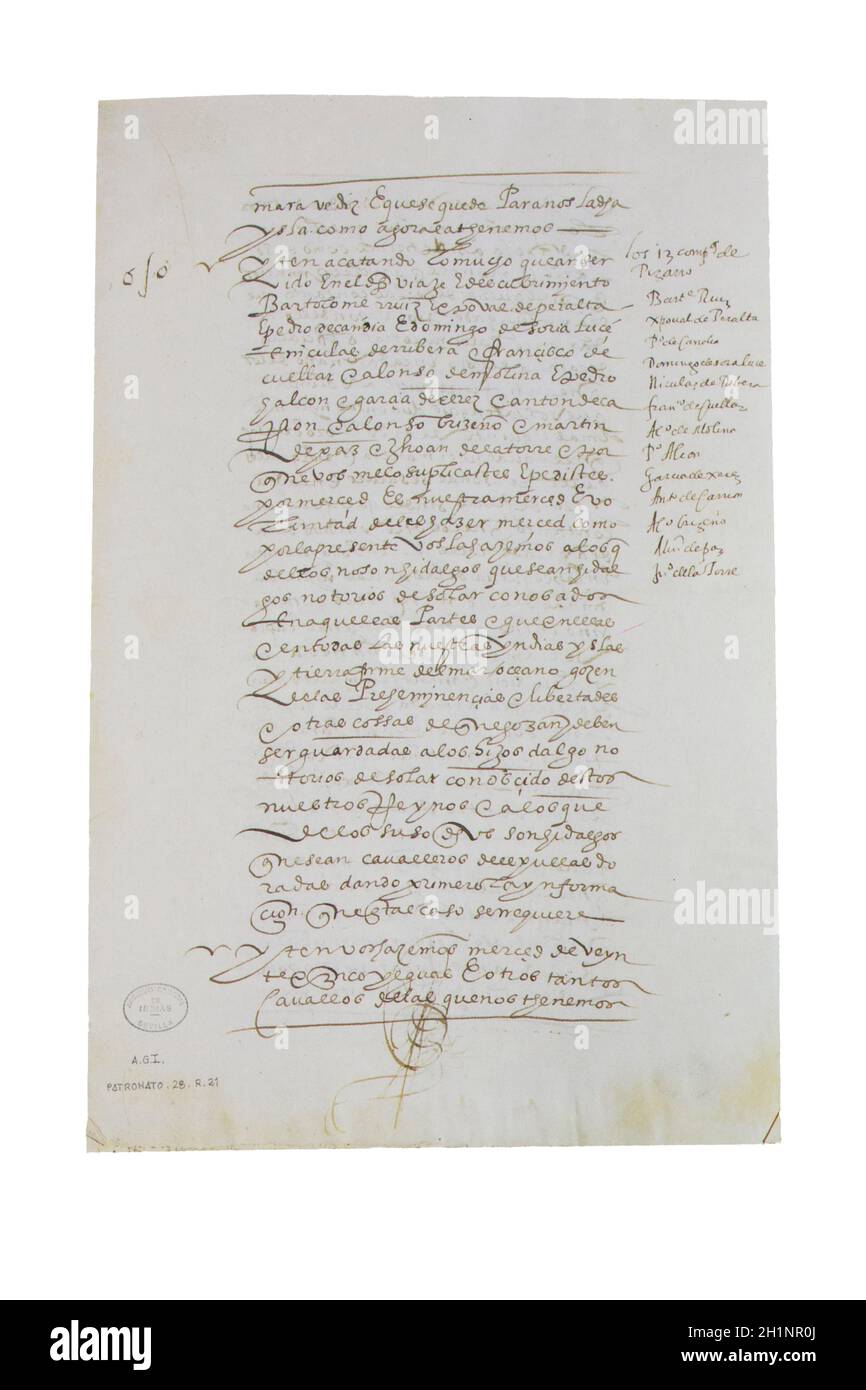 maravediz E que se quede Para nos la dha
ysla como agora la thenemos
yten acatando lo mucho que an ser
vido En el viaje E descubrimiento
Bartolome rruiz E xpoval de peralta
E pedro de candia E domingo de soria luce
E niculas de rribera E francisco de
cuellar E alonso de molina E pedro
halcon E garcia de xerez E anton de ca
rrion E alonso brizeño E martin
de paz E Jhoan de la torre E por
que vos me lo suplicastes E pedistes
por merced Es nuestra merced E vo
luntad de les hazer merced como
por la presente vos la hazemos a los q
dellos no son hidalgos que sean hidal
gos notorios de solar conoςido
En aquellas Partes E que en ellas
E en todas las nuestras yndias yslas
y tierra firme del mar oceano gozen
de las Preheminencias E libertades
E otras cossas de que gozan E deben
ser guardadas a los hijos dalgo no
torios de solar conosçido destos
nuestros Reynos E a los que
de los suso dhos son hidalgos
que sean cavalleros de espuelas do
radas dando primero la ynforma
cion que En tal caso se requiere
yten vos hazemos merced de veyn
te E zinco yeguas E otros tantos
Cavallos de las que nos thenemos
los 13 comp.s de
Pizarro
Bar.e Ruiz
xpoual de Peralta
P.o de Candia
Domingo de sora luce
Niculas de Ribera
fran.o de Cuellar
Al.o de Molina
P.o Alcon
Garcia de xerez
Ant.o de Carrion
Al.o brizeño
M.n de paz
Ju.o de la Torre
ARCHIVO GENERAL
DE
INDIAS
SEVILLA
A.G.I.
PATRONATO. 28. R. 21
alamy
Image ID: 2H1NR0J
www.alamy.com